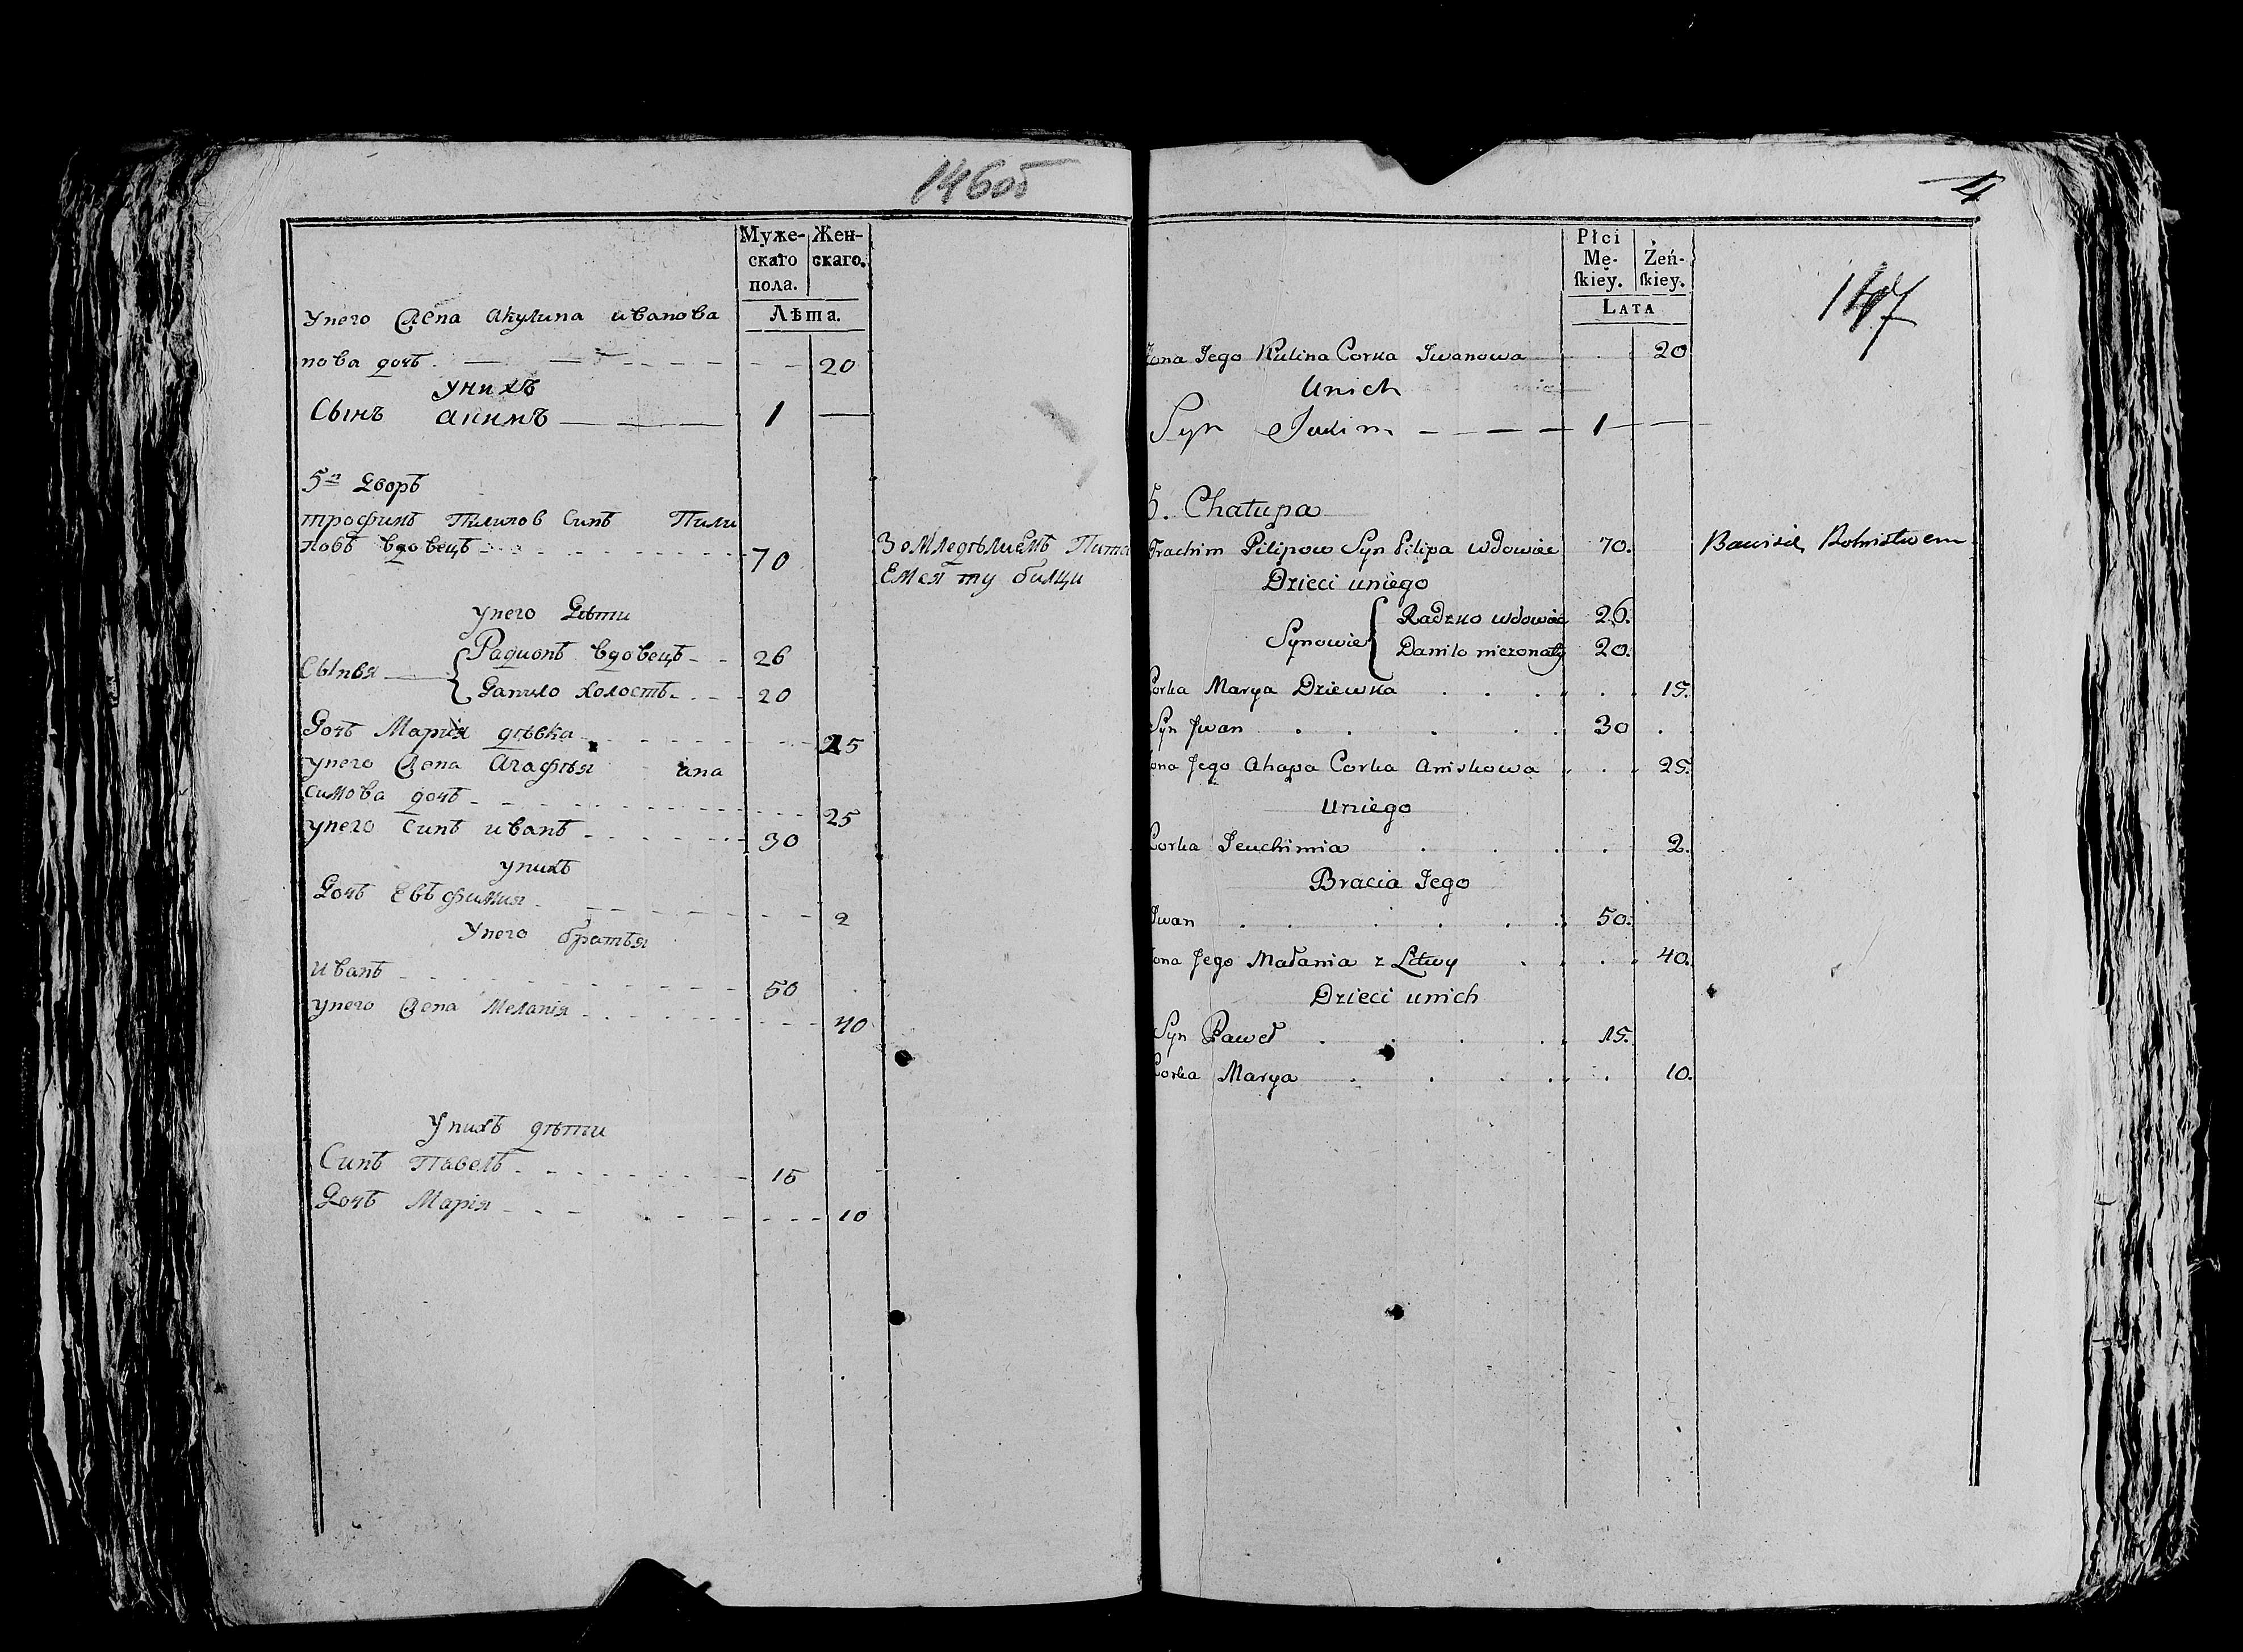 146об
Муже- Жен-
скаго скаго.
пола.
Лѣта.
унего Жена Акулина иванова
нова дочь 20
унихъ
Сынъ Акимъ 1
5й Дворъ
трофимъ Пилипов Синъ Пили
повъ вдовецъ 70
Зомледѣлиемъ Пита
Емся ту билци
унего Дѣти
Сынвя Радионъ вдовецъ 26
Данило холостъ 20
Дочь Мария дѣвка 15
унего Жена Агафья ана
симова дочь 25
унего Синъ иванъ 30
унихъ
Дочь Евъфимия 2
Унего братья
иванъ 50
унего Жена Меланія 40
Унихъ дѣти
Синъ Павелъ 15
Дочь Марія 10
4
147
Płci
Mę- Żeń-
ſkiey. ſkiey.
LATA
Żona Jego Kulina Corka Jwanowa 20
Unich
Syn Jakim 1
5. Chałupa
Trachim Pilipow Syn Pilipa Wdowiec 70. Bawisie Rolnistwem
Dzieci uniego
Synowie Radzko wdowiec 26.
Daniło nieżonaty 20.
Corka Marya Dziewka 15.
Syn Jwan 30
Żona Jego Ahapa Corka Aniskowa 25.
Uniego
Corka Jeuchimia 2.
Bracia Jego
Jwan 50.
Żona Jego Małania z Litwy 40.
Dzieci unich
Syn Paweł 15.
Corka Marya 10.